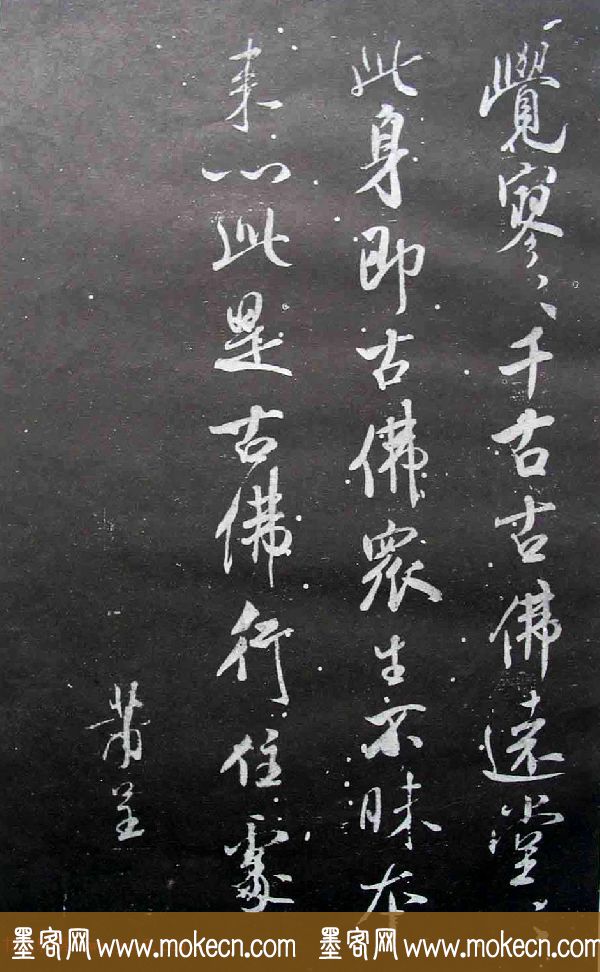 覺寥〻千古古佛遠堂〻
此身即古佛衆生不昧本
来心此是古佛行住處
芾呈
墨客网 www.mokecn.com 墨客网 www.mokecn.com